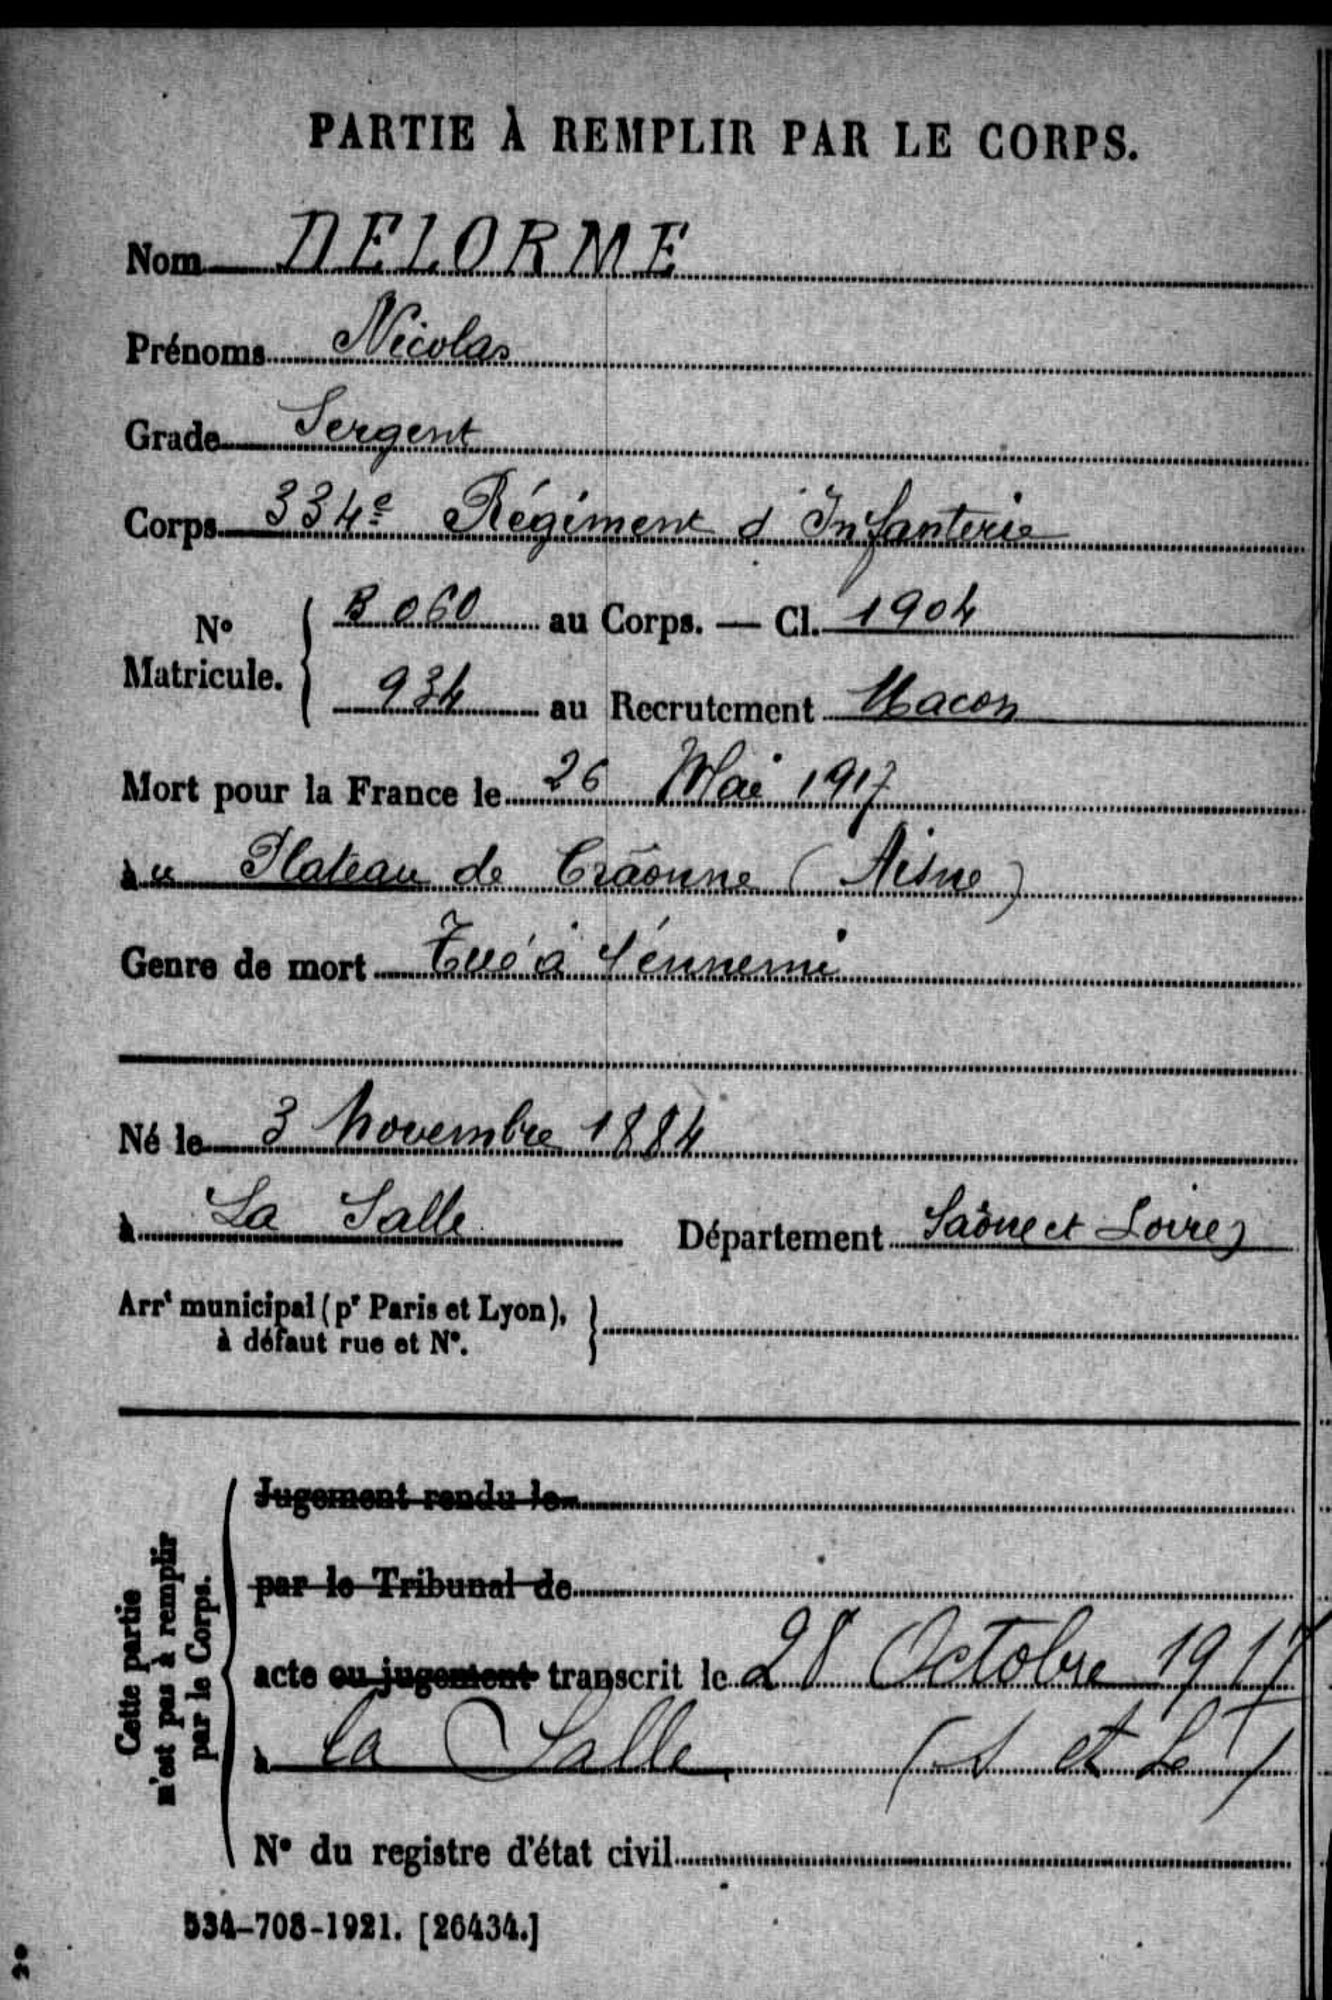 PARTIE À REMPLIR PAR LE CORPS.
Nom DELORME
Prénoms Nicolas
Grade Sergent
Corps 334e Régiment d'Infanterie
No Matricule. { B 060 au Corps. — Cl. 1904
934 au Recrutement Macon
Mort pour la France le 26 Mai 1917
au Plateau de Craonne (Aisne)
Genre de mort Tué à l'énnemi
Né le 3 Novembre 1884
à La Salle Département Saône et Loire)
Arrt municipal (pr Paris et Lyon),
à défaut rue et No.
Cette partie
n'est pas à remplir
par le Corps.
Jugement rendu le
par le Tribunal de
acte ou jugement transcrit le 28 Octobre 1917
à la Salle (S et L)
No du registre d'état civil
534-708-1921. [26434.]